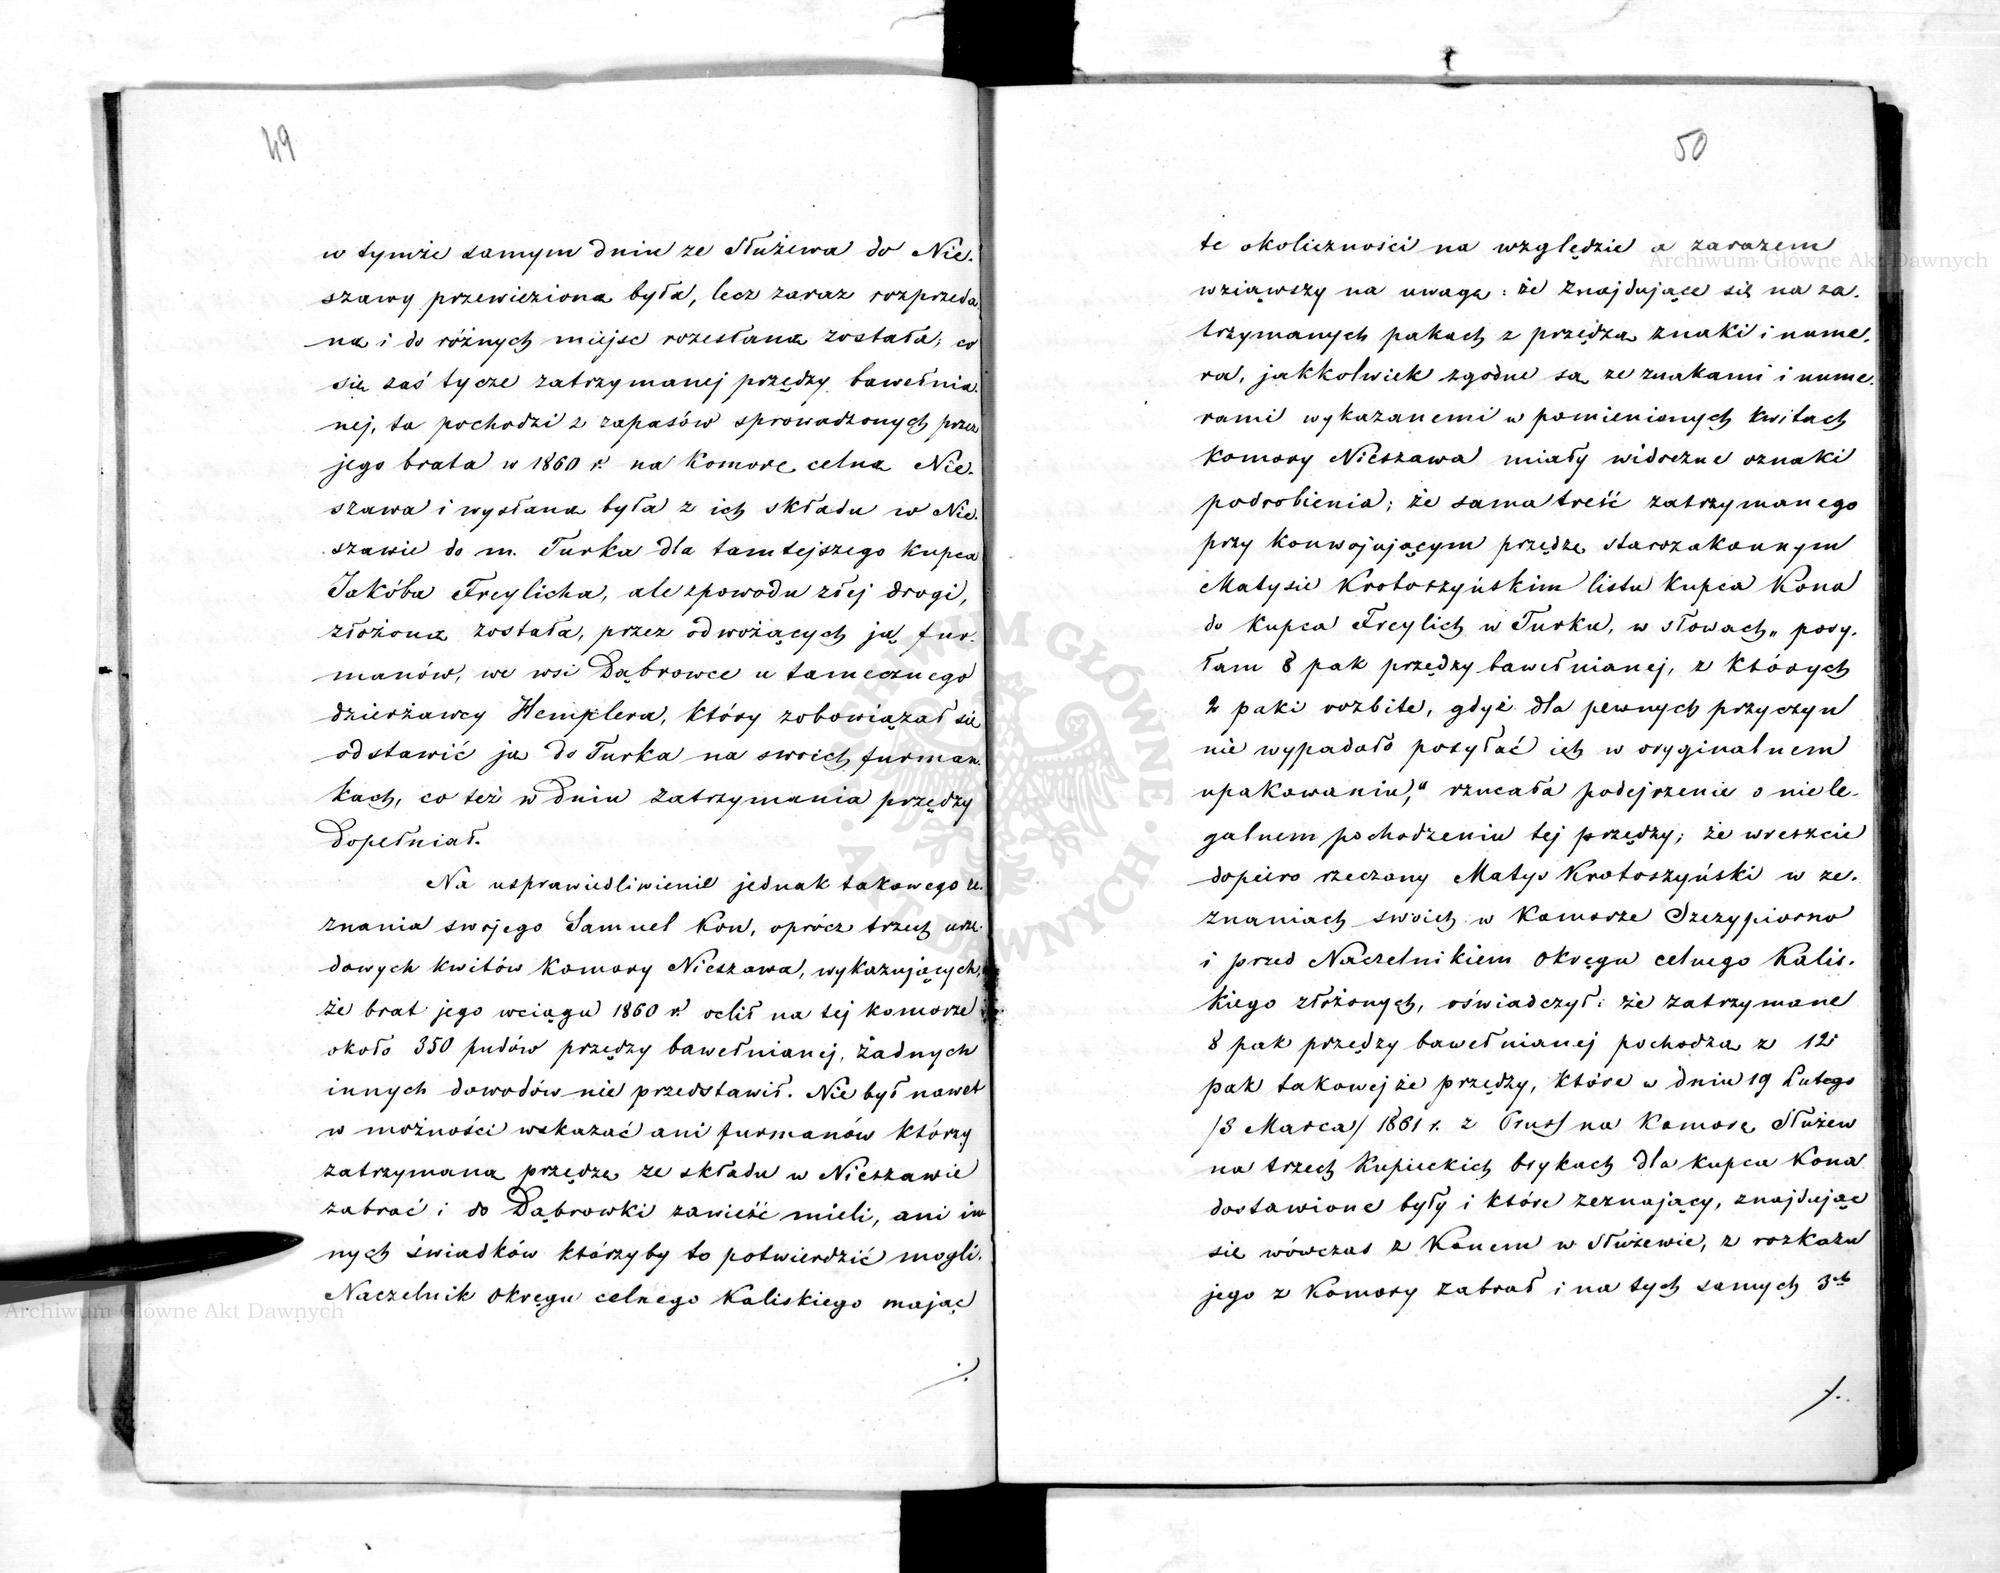 49
w tymże samym dniu ze Służewa do Nie-
szawy przewieziona była, lecz zaraz rozprzeda-
na i do różnych miejsc rozesłana została; co
się zaś tycze zatrzymanej przędzy bawełnia-
nej, ta pochodzi z zapasów sprowadzonych przez
jego brata w 1860 r. na Komorę celną Nie-
szawa i wysłana była z ich składu w Nie-
szawie do m. Turka dla tamtejszego kupca
Jakóba Freylicha, ale z powodu złej drogi,
złożona została, przez odwożących ją fur-
manów, we wsi Dąbrowce u tamecznego
dzierżawcy Hemplera, który zobowiązał się
odstawić ją do Turka na swoich furman-
kach, co też w dniu zatrzymania przędzy
dopełniał.
Na usprawiedliwienie jednak takowego ze-
znania swojego Samuel Kon, oprócz trzech urzę-
dowych kwitów Komory Nieszawa, wykazujących,
że brat jego wciągu 1860 r. oclił na tej komorze
około 350 pudów przędzy bawełnianej, żadnych
innych dowodów nie przedstawił. Nie był nawet
w możności wskazać ani furmanów którzy
zatrzymaną przędzę ze składu w Nieszawie
zabrać i do Dąbrowki zawieźć mieli, ani in-
nych świadków którzyby to potwierdzić mogli.
Naczelnik Okręgu celnego Kaliskiego mając
50
te okoliczności na względzie a zarazem
wziąwszy na uwagę: że znajdujące się na za-
trzymanych pakach z przędzą znaki i nume-
ra, jakkolwiek zgodne są ze znakami i nume-
rami wykazanemi w pomienionych kwitach
Komory Nieszawa miały widoczne oznaki
podrobienia; że sama treść zatrzymanego
przy konwojującym przędzę starozakonnym
Matysie Krotoszyńskim listu kupca Kona
do kupca Freylich w Turku, w słowach „posy-
łam 8 pak przędzy bawełnianej, z których
2 paki rozbite, gdyż dla pewnych przyczyn
nie wypadało posyłać ich w oryginalnem
upakowaniu," rzucała podejrzenie o niele-
galnem pochodzeniu tej przędzy; że wreszcie
dopiero rzeczony Matys Krotoszyński w ze-
znaniach swoich w Komorze Szczypiorno
i przed Naczelnikiem Okręgu celnego Kalis-
kiego złożonych, oświadczył: że zatrzymane
8 pak przędzy bawełnianej pochodzą z 12
pak takowejże przędzy, które w dniu 19 Lutego
/3 Marca/ 1861 r. z Pruss na Komorę Służew
na trzech kupieckich brykach dla kupca Kona
dostawione były i które zeznający, znajdując
się wówczas z Konem w Służewie, z rozkazu
jego z Komory zabrał i na tych samych 3ch
Archiwum Główne Akt Dawnych
Archiwum Główne Akt Dawnych
ARCHIWUM GŁÓWNE
AKT DAWNYCH